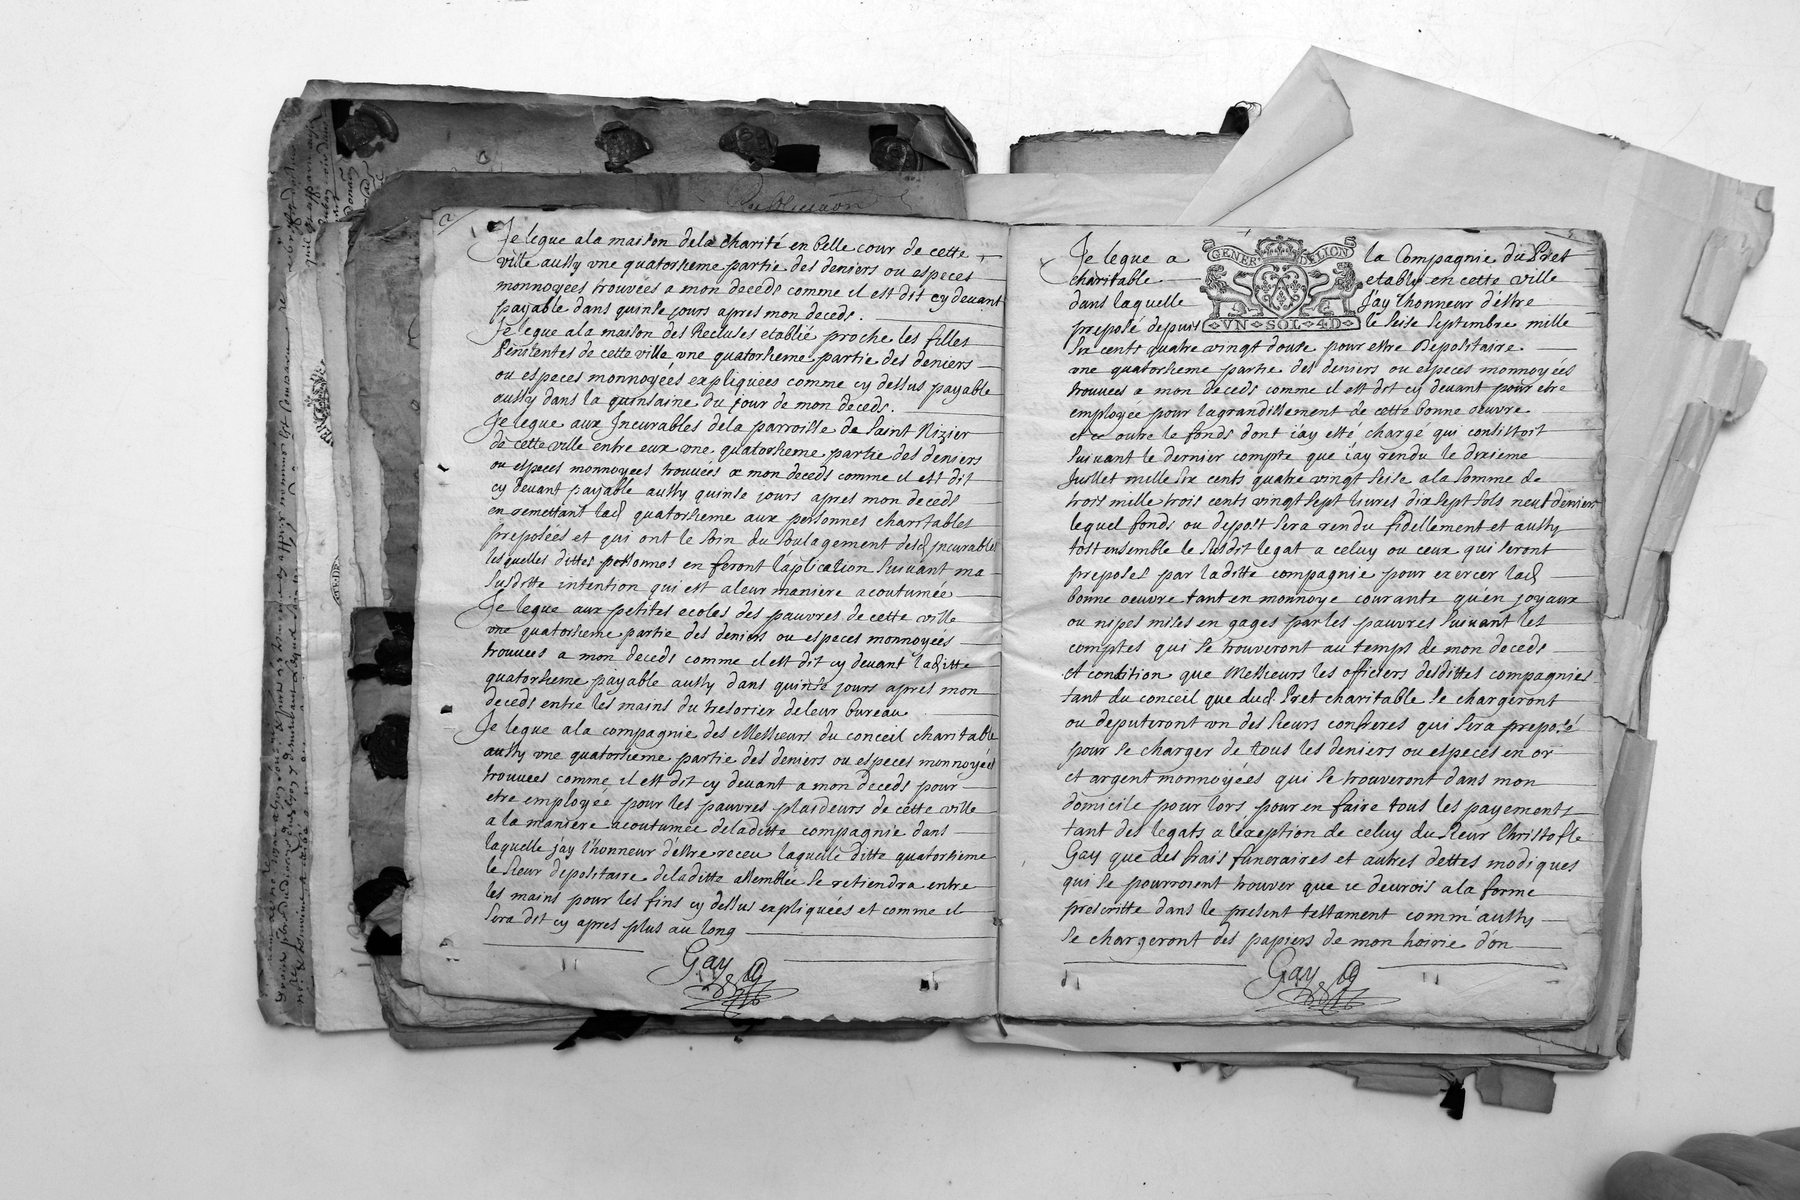 Publication
Je legue ala maison dela charité en belle cour de cette
ville aussy vne quatorsieme partie des deniers ou especes
monnoyées trouvées a mon deceds comme il est dit cy devant
payable dans quinse jours apres mon deceds.
Je legue ala maison des Recluses etablie proche les filles
Penitentes de cette ville vne quatorsieme partie des deniers
ou especes monnoyées expliquées comme cy dessus payable
aussy dans la quinsaine du jour de mon deceds.
Je legue aux Incurables dela parroisse de Saint Nizier
de cette ville entre eux vne quatorsieme partie des deniers
ou especes monnoyees trouvées a mon deceds comme il est dit
cy devant payable aussy quinse jours apres mon deceds
en remettant lad quatorsieme aux personnes charitables
preposées et qui ont le soin du soulagement desd incurables
lesquelles dittes personnes en feront l'aplication suivant ma
susditte intention qui est aleur maniere acoutumée
Je legue aux petites ecoles des pauvres de cette ville
vne quatorsieme partie des deniers ou especes monnoyées
trouvées a mon deceds comme il est dit cy devant laditte
quatorsieme payable aussy dans quinse jours apres mon
deceds entre les mains du tresorier deleur bureau
Je legue ala compagnie des Messieurs du conceil charitable
aussy vne quatorsieme partie des deniers ou especes monnoyées
trouvees comme il est dit cy devant a mon deceds pour
etre employée pour les pauvres plaideurs de cette ville
a la maniere acoutumée deladitte compagnie dans
laquelle jay l'honneur d'estre receu laquelle ditte quatorsieme
le sieur depositaire deladitte assemblée se retiendra entre
les mains pour les fins cy dessus expliquées et comme il
sera dit cy apres plus au long
Gay
Je legue a la Compagnie du Pret
GENER DE LION
charitable etablie en cette ville
dans laquelle J'ay l'honneur d'estre
preposé depuis le seise septembre mille
VN SOL 4D
six cents quatre vingt douse pour estre Depositaire
vne quatorsieme partie des deniers ou especes monnoyées
trouvees a mon deceds comme il est dit cy devant pour etre
employée pour lagrandissement de cette bonne oeuvre
et ce outre le fonds dont iay esté chargé qui consistoit
suivant le dernier compte que iay rendu le dixieme
Juillet mille six cents quatre vingt seise ala somme de
trois mille trois cents vingt sept livres dix sept sols neuf deniers
lequel fonds ou depost sera rendu fidellement et aussy
tost ensemble le susdit legat a celuy ou ceux qui seront
preposes par laditte compagnie pour exercer lad
bonne oeuvre tant en monnoye courante qu'en joyaux
ou nipes mises en gages par les pauvres suivant les
comptes qui se trouveront au temps de mon deceds
A condition que Messieurs les officiers desdittes compagnies
tant du conceil que dud Pret charitable se chargeront
ou deputeront vn des sieurs confreres qui sera preposé
pour se charger de tous les deniers ou especes en or
et argent monnoyées qui se trouveront dans mon
domicile pour lors pour en faire tous les payements
tant des legats a lexeption de celuy du sieur Christofle
Gay que des frais funeraires et autres dettes modiques
qui se pourroient trouver que ie devrois a la forme
prescritte dans le present testament comm'aussy
se chargeront des papiers de mon hoirie d'on
Gay